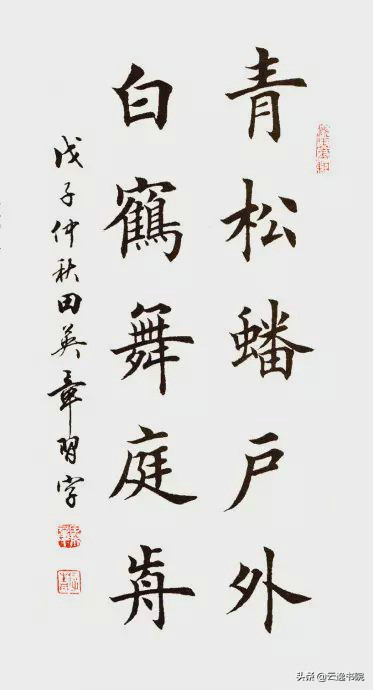 青松蟠户外
白鶴舞庭歬
戊子仲秋田英章習字
头条@云逸书院